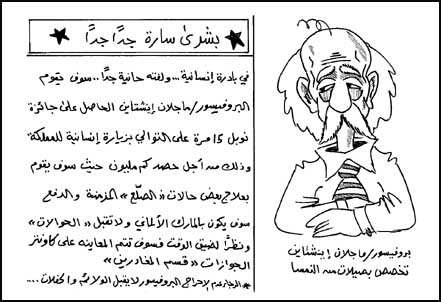 بشرى سارة جدًا جدًا
في بادرة إنسانية... ولفتة حانية جدًا.. سوف يقوم
البروفيسور/ماجلان إينشتاين الحاصل على جائزة
نوبل 15 مرة على التوالي بزيارة إنسانية للمملكة
وذلك من أجل حصد كم مليون حيث سوف يقوم
بعلاج بعض حالات «الصلع» المزمنة والدفع
سوف يكون بالمارك الألماني ولا تقبل «الحوالات»
ونظرًا لضيق الوقت فسوف تتم المعاينه على كاونتر
الجوازات «قسم المغادرين»
* الرجاء عدم إحراج البروفيسور لا يقبل الولائم والحفلات....
بروفيسور/ماجلان إينشتاين
تخصص بصيلات من النمسا